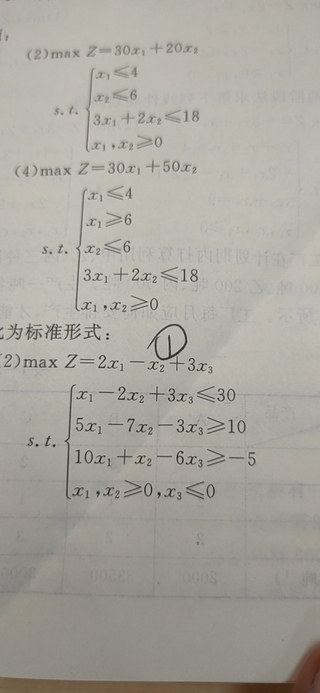 (2)max Z=30x₁+20x₂
s.t. { x₁≤4
x₂≤6
3x₁+2x₂≤18
x₁,x₂≥0
(4)max Z=30x₁+50x₂
s.t. { x₁≤4
x₁≥6
x₂≤6
3x₁+2x₂≤18
x₁,x₂≥0
为标准形式:
①
2)max Z=2x₁-x₂+3x₃
s.t. { x₁-2x₂+3x₃≤30
5x₁-7x₂-3x₃≥10
10x₁+x₂-6x₃≥-5
x₁,x₂≥0,x₃≤0